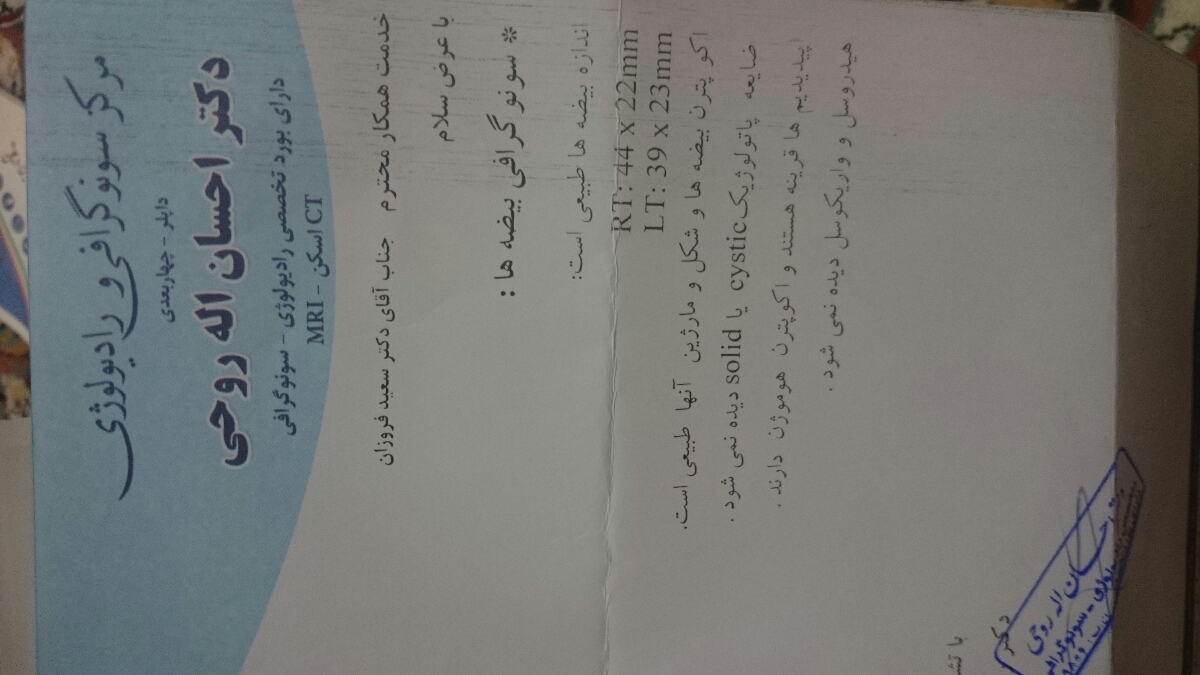 مرکز سونوگرافی و رادیولوژی
داپلر - چهاربعدی
دکتر احسان اله روحی
دارای بورد تخصصی رادیولوژی - سونوگرافی
CT اسکن - MRI
خدمت همکار محترم جناب آقای دکتر سعید فروزان
با عرض سلام
* سونوگرافی بیضه ها :
اندازه بیضه ها طبیعی است:
RT: 44 x 22mm
LT: 39 x 23mm
اکو پترن بیضه ها و شکل و مارژین آنها طبیعی است.
ضایعه پاتولوژیک cystic یا solid دیده نمی شود .
اپیدیدیم ها قرینه هستند و اکوپترن هوموژن دارند .
هیدروسل و واریکوسل دیده نمی شود .
با
دکتر
احسان اله روحی
رادیولوژی - سونوگرافی